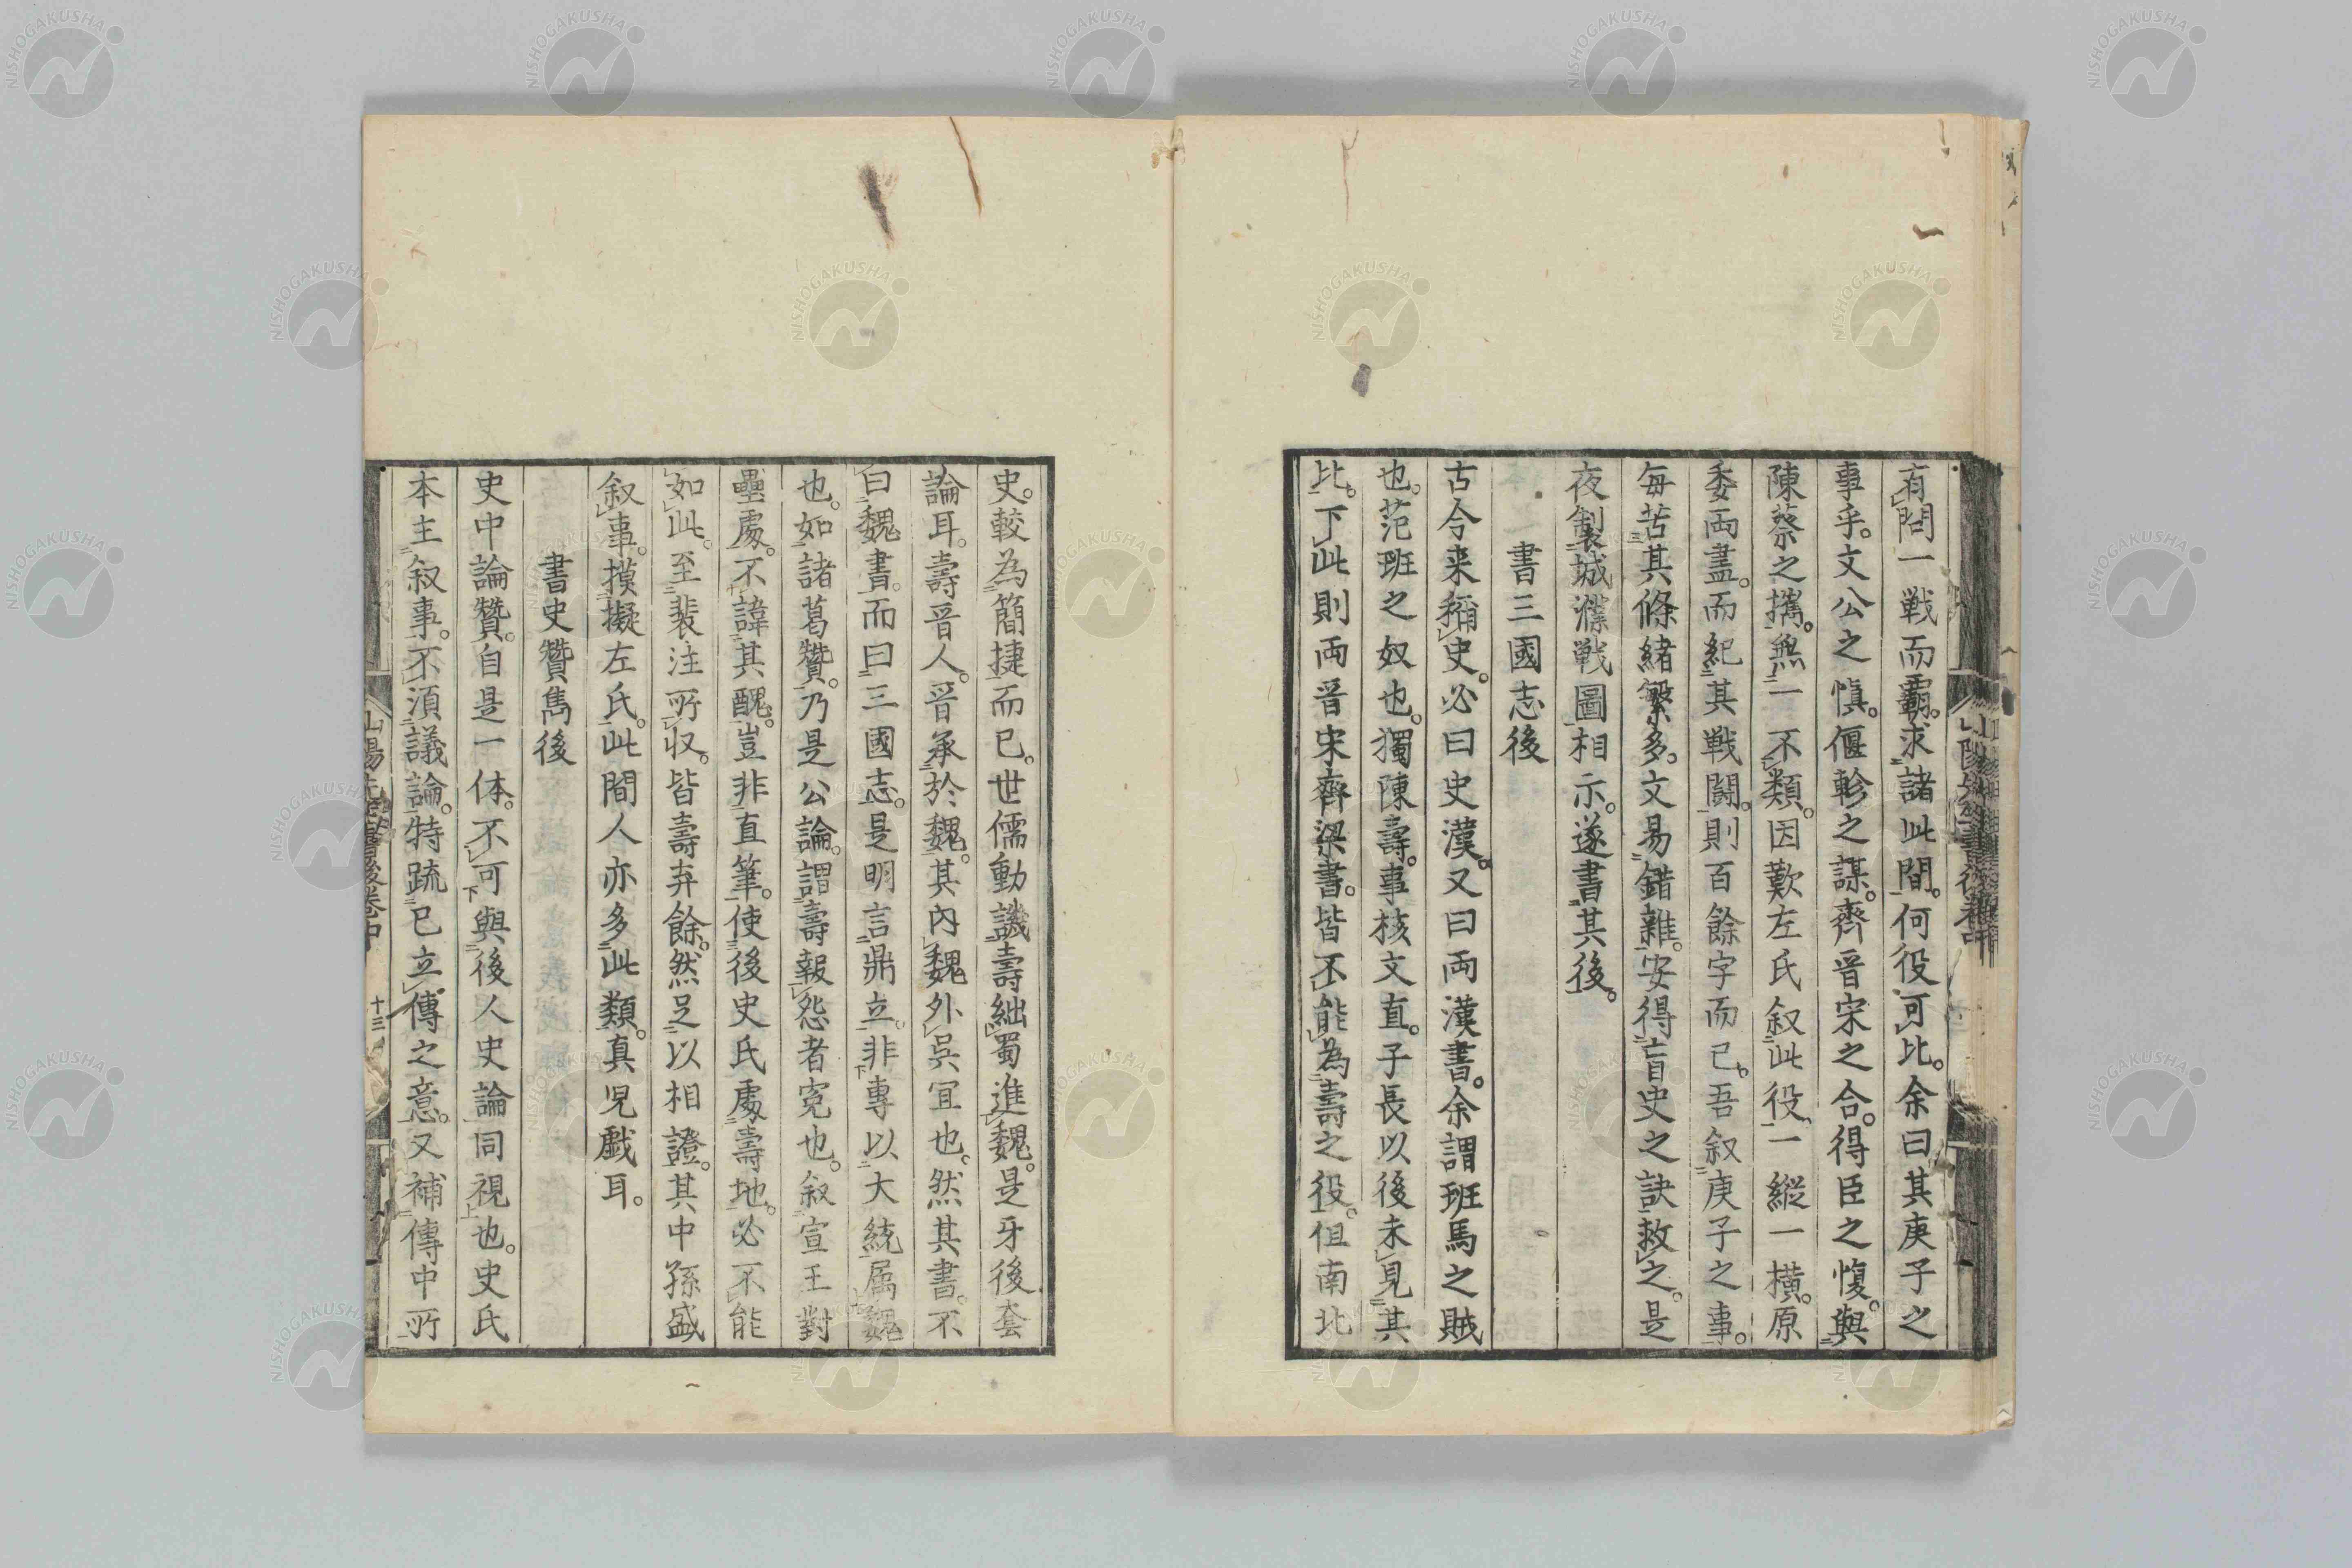 有問一戦而霸。求諸此間。何役可比。余曰其庚子之
事乎。文公之慎。偃軫之謀。齊晋宋之合。得臣之愎。與
陳蔡之攜。無一不類。因歎左氏叙此役、一縱一横。原
委両盡。而紀其戦闘。則百餘字而已。吾叙庚子之事。
毎苦其條緒繁多。文易錯雜。安得盲史之訣救之。是
夜製城濮戦圖相示。遂書其後。
書三國志後
古今来稱史。必曰史漢。又曰両漢書。余謂班馬之賊
也。范班之奴也。獨陳壽。事核文直。子長以後未見其
比。下此則両晋宋齊梁書。皆不能為壽之役。但南北
史。較為簡捷而已。世儒動譏壽絀蜀進魏。是牙後套
論耳。壽晋人。晋承於魏。其內魏外呉宜也。然其書。不
曰魏書。而曰三國志。是明言鼎立。非專以大統属魏
也。如諸葛贊。乃是公論。謂壽報怨者寃也。叙宣王對
壘處。不諱其醜。豈非直筆。使後史氏處壽地。必不能
如此。至裴注所収。皆壽弃餘。然足以相證。其中孫盛
叙事。摸擬左氏。此間人亦多此類。真児戯耳。
書史贊雋後
史中論贊。自是一体。不可與後人史論同視也。史氏
本主叙事。不須議論。特疏已立傳之意。又補傳中所
山陽先生書後卷中
十三